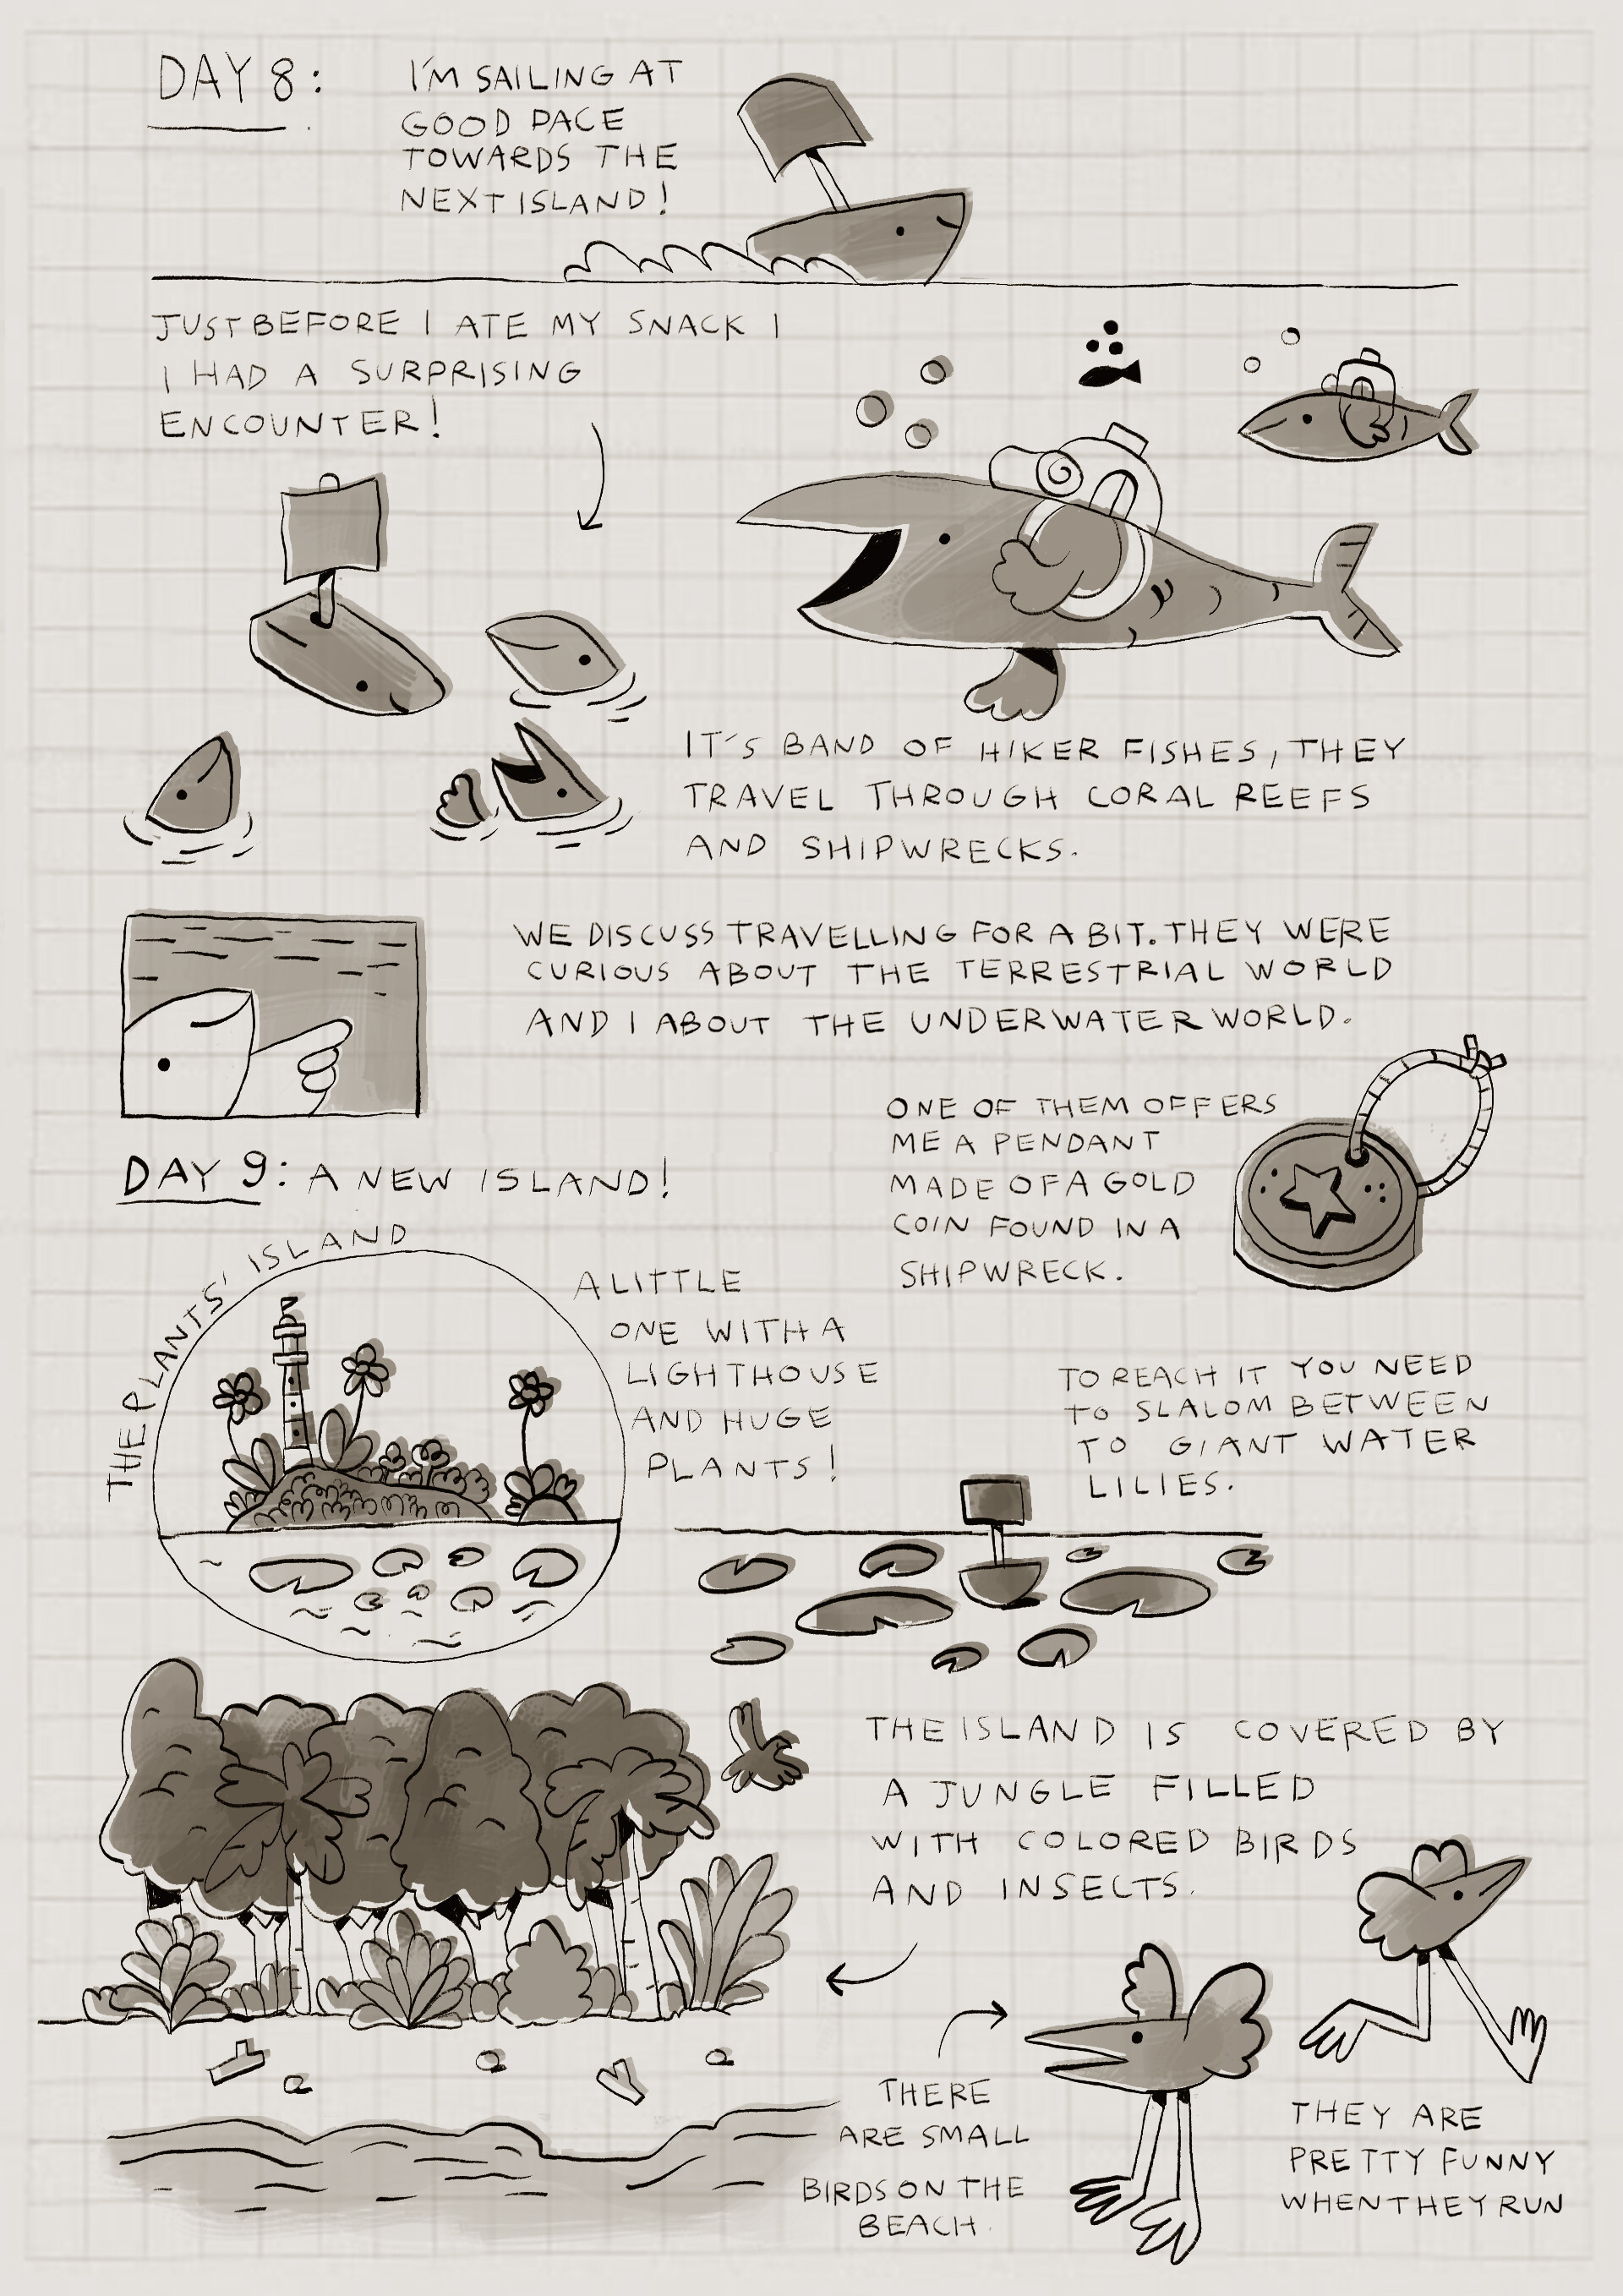 DAY 8:
I'M SAILING AT
GOOD PACE
TOWARDS THE
NEXT ISLAND!
JUST BEFORE I ATE MY SNACK I
I HAD A SURPRISING
ENCOUNTER!
IT'S BAND OF HIKER FISHES, THEY
TRAVEL THROUGH CORAL REEFS
AND SHIPWRECKS.
WE DISCUSS TRAVELLING FOR A BIT. THEY WERE
CURIOUS ABOUT THE TERRESTRIAL WORLD
AND I ABOUT THE UNDERWATER WORLD.
ONE OF THEM OFFERS
ME A PENDANT
MADE OF A GOLD
COIN FOUND IN A
SHIPWRECK.
DAY 9: A NEW ISLAND!
THE PLANTS' ISLAND
A LITTLE
ONE WITH A
LIGHTHOUSE
AND HUGE
PLANTS!
TO REACH IT YOU NEED
TO SLALOM BETWEEN
TO GIANT WATER
LILIES.
THE ISLAND IS COVERED BY
A JUNGLE FILLED
WITH COLORED BIRDS
AND INSECTS.
THERE
ARE SMALL
BIRDS ON THE
BEACH.
THEY ARE
PRETTY FUNNY
WHEN THEY RUN